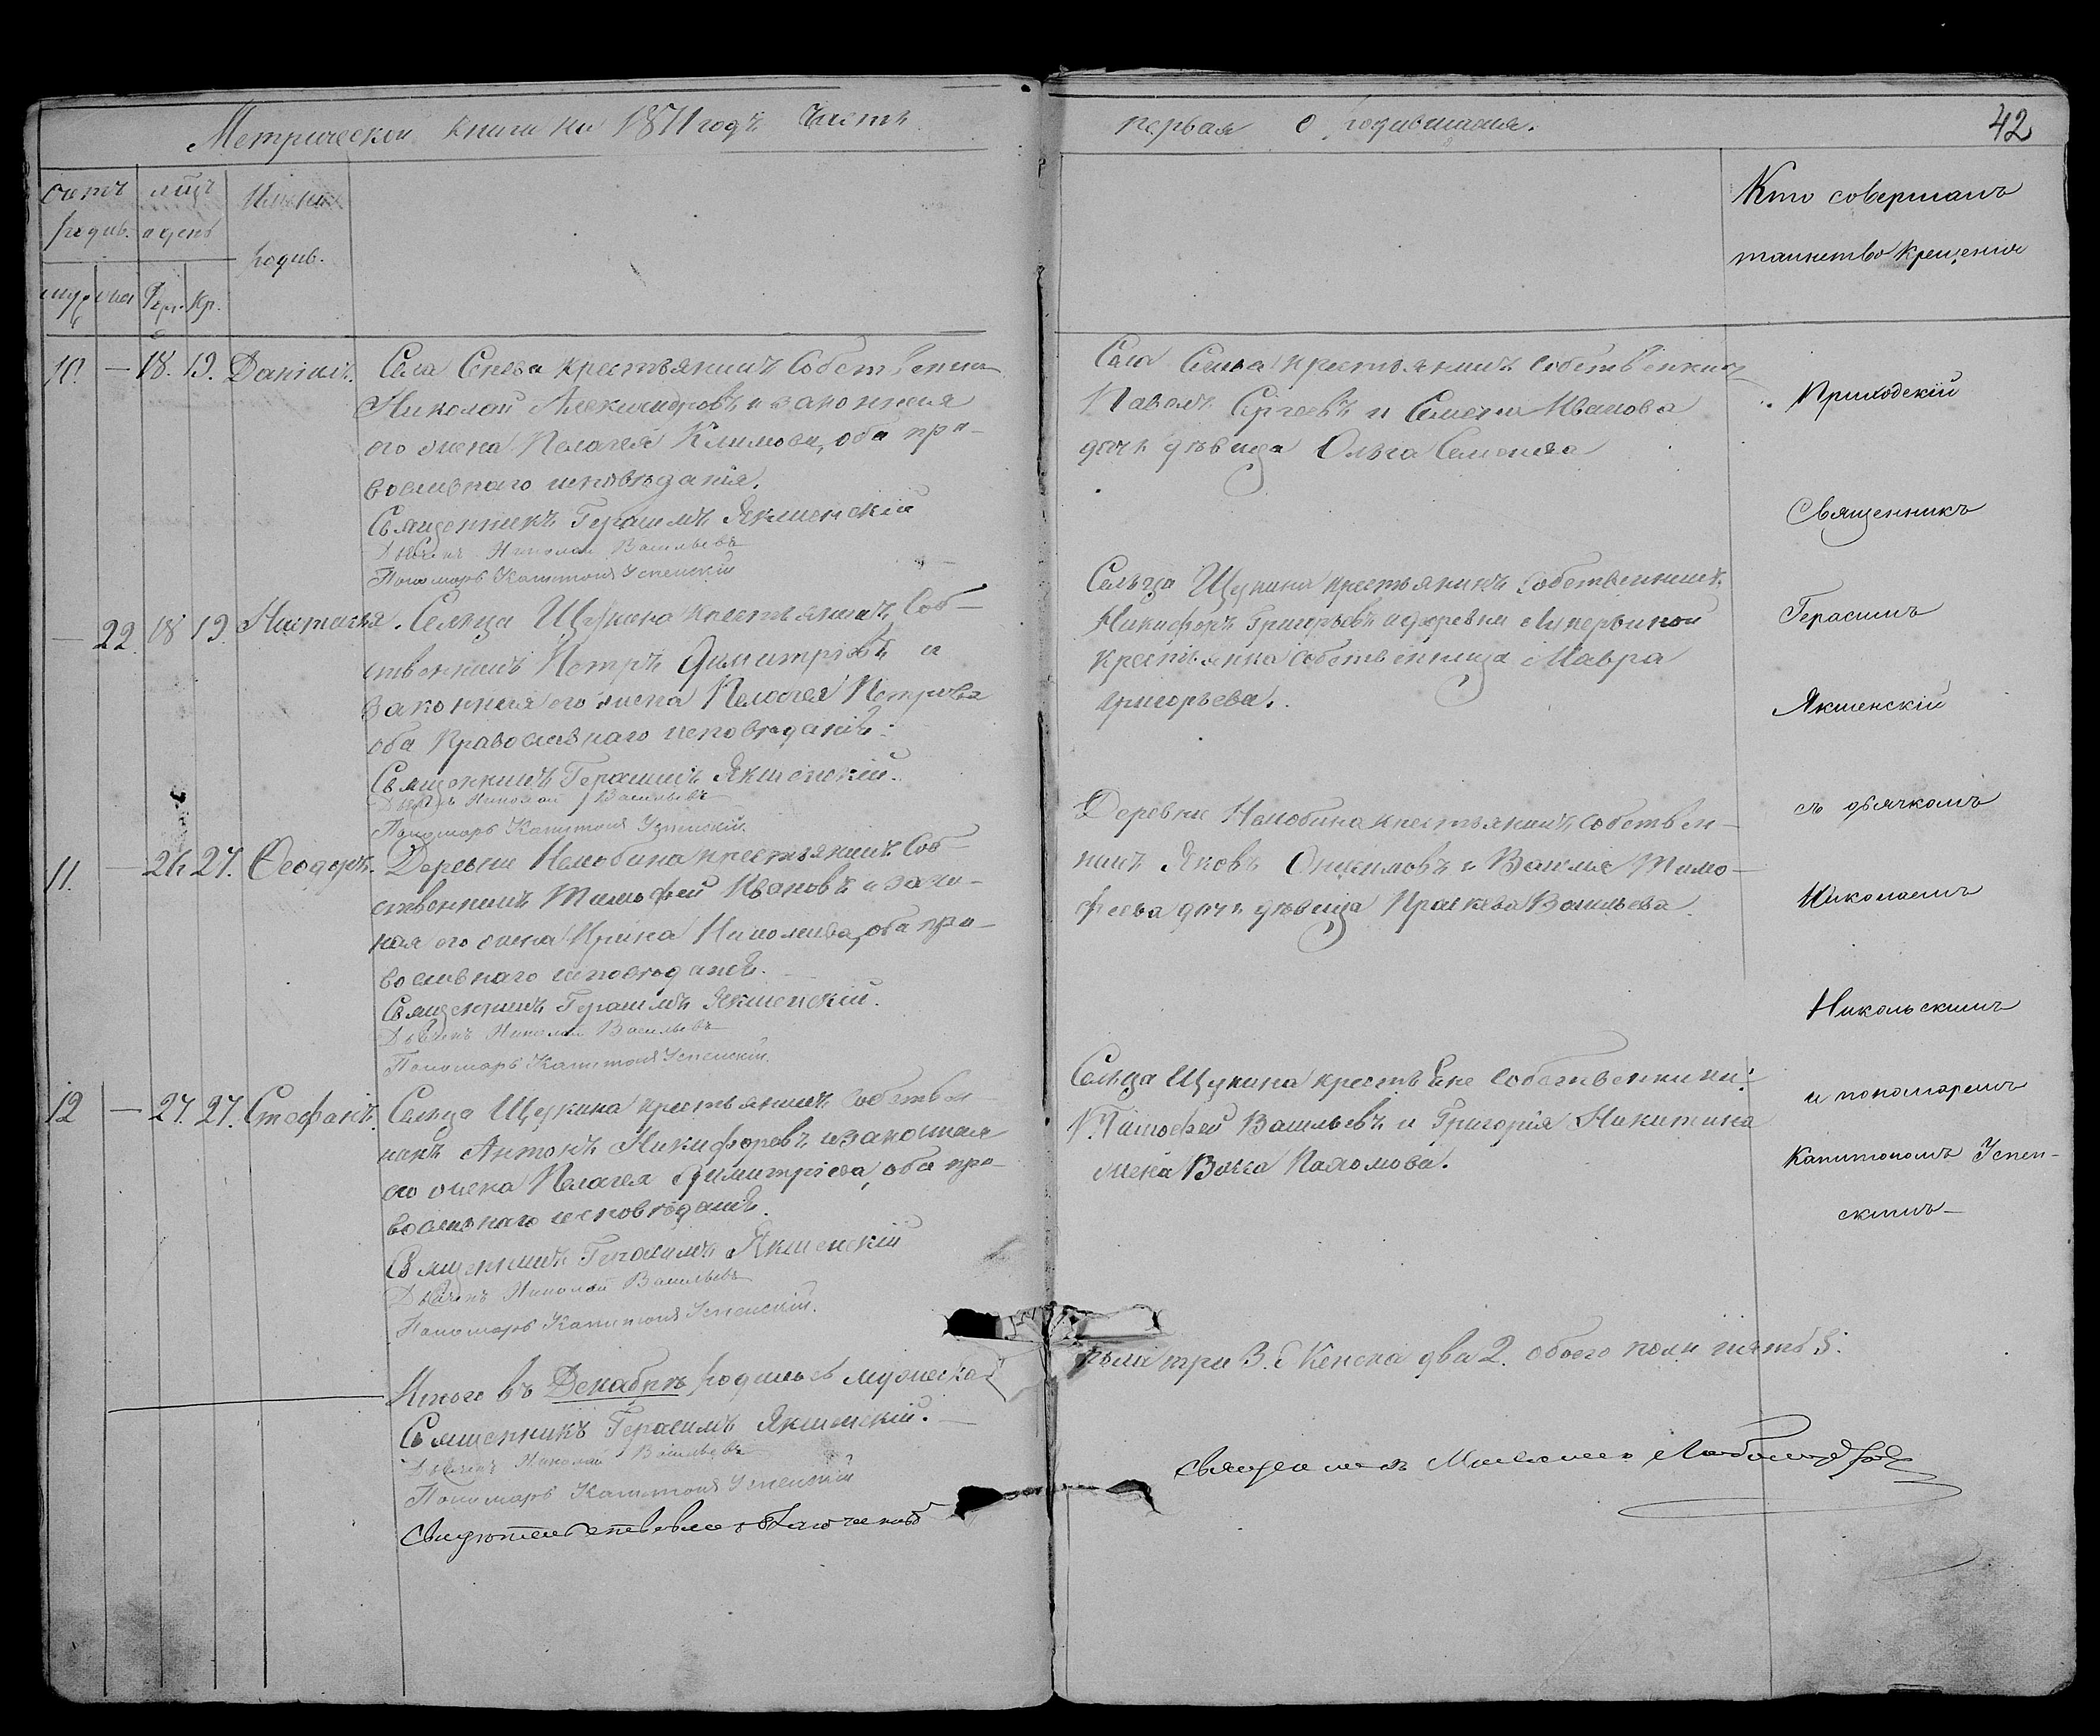 Метрической книги на 1871 годъ Часть
первая о родившихся.
42
Счетъ родив.
мцъ и день
Имена родив.
муж. жен. Рож. Кр.
Кто совершалъ
таинство крещенія
10. — 18. 19. Даніилъ.
Села Сенева крестьянинъ Собственник
Николай Александровъ и законная
его жена Пелагея Климова, оба пра-
вославнаго исповѣданія.
Священникъ Герасимъ Якшенскій
Дьячекъ Николай Васильевъ
Пономарь Капитонъ Успенскій
Села Сенева крестьянинъ собственник
Павелъ Сергеевъ и Семена Иванова
дочь дѣвица Ольга Семенова
— 22. 18 19 Наталья.
Сельца Щукина крестьянинъ Соб-
ственникъ Петръ Димитріевъ и
законная его жена Пелагея Петрова
оба Православнаго исповѣданія.
Священникъ Герасимъ Якшенскій.
Дьячекъ Николай Васильевъ
Пономарь Капитонъ Успенскій.
Сельца Щукина крестьянинъ собственникъ
Никифоръ Григорьевъ и деревни
крестьянка собственница Мавра
Григорьева.
11. — 26 27. Ѳеодоръ.
Деревни Нелобина крестьянинъ Соб-
ственникъ Тимофей Ивановъ и зако-
ная его жена Ирина Николаева, оба пра-
вославнаго исповѣданія.
Священникъ Герасимъ Якшенскій.
Дьячекъ Николай Васильевъ
Пономарь Капитонъ Успенскій.
Деревни Нелобина крестьянинъ собствен-
никъ Яковъ Онисимовъ и Василья Тимо-
феева дочь дѣвица Прасковья Васильева.
12 — 27. 27. Стефанъ.
Сельца Щукина крестьянинъ Собствен-
никъ Антонъ Никифоровъ и законная
его жена Пелагея Димитріева, оба пра-
вославнаго исповѣданія.
Священникъ Герасимъ Якшенскій
Дьячекъ Николай Васильевъ
Пономарь Капитонъ Успенскій.
Сельца Щукина крестьяне Собственники:
Тимофей Васильевъ и Григорія Никитина
жена Васса Пахомова.
Приходскій
Священникъ
Герасимъ
Якшенскій
съ дьячкомъ
Николаемъ
Никольскимъ
и пономаремъ
Капитономъ Успен-
скимъ
Итого въ Декабрѣ родилось мужеска
пола три 3. Женска два 2. обоего пола пять 5.
Священникъ Герасимъ Якшенскій.
Дьячекъ Николай Васильевъ
Пономарь Капитонъ Успенскій
Свидѣтельствовалъ
Священникъ